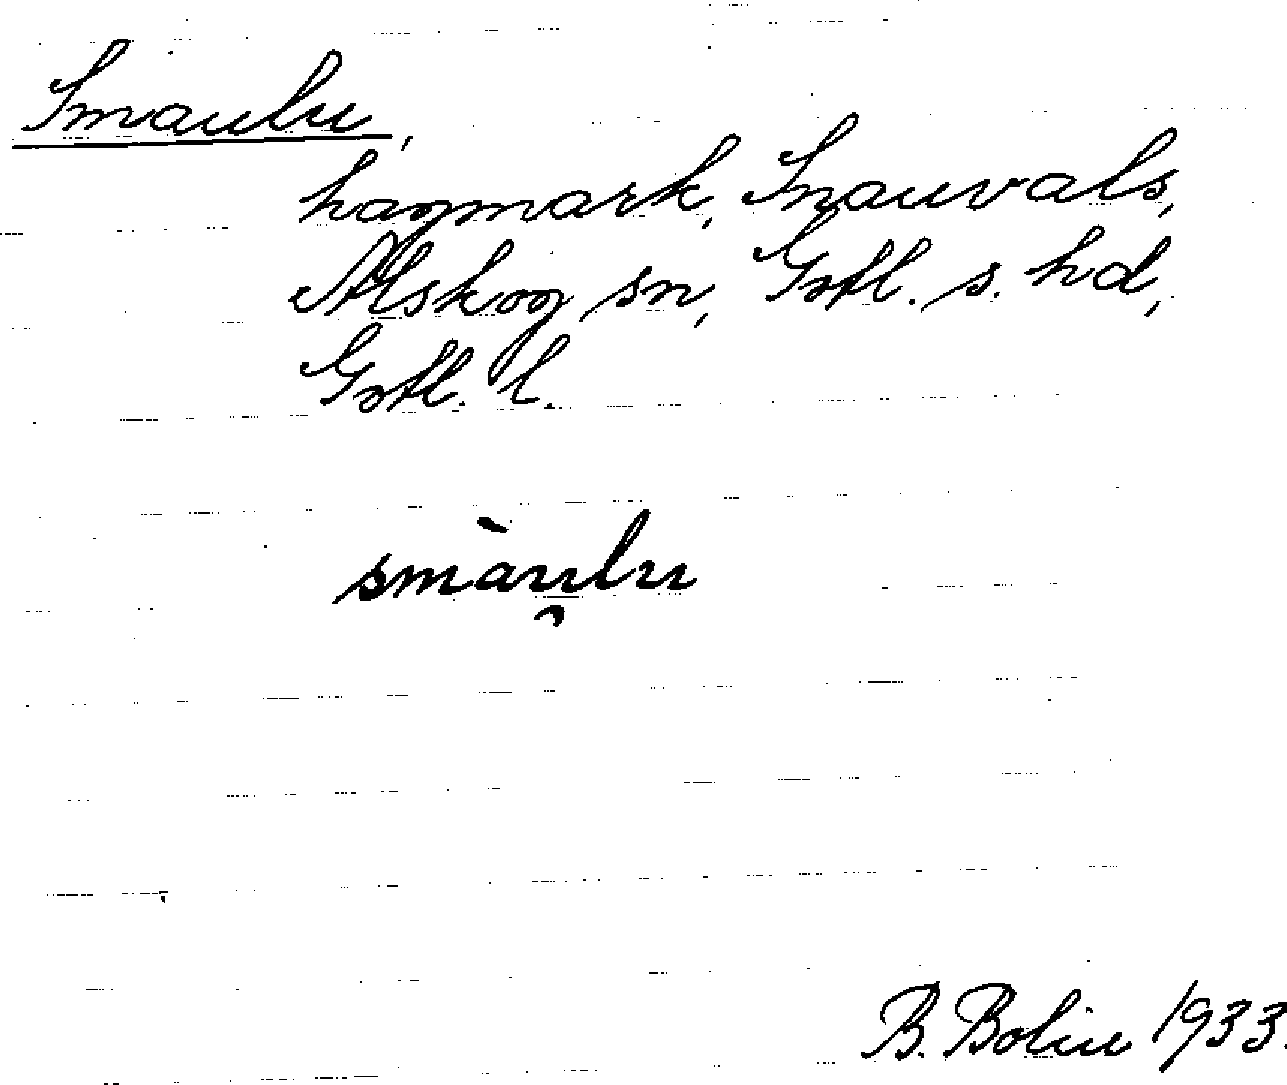 Smaulu,
hagmark, Snauvals,
Alskog sn, Gotl. s. hd,
Gotl. l.
smàu̯lu
B. Bolin 1933.